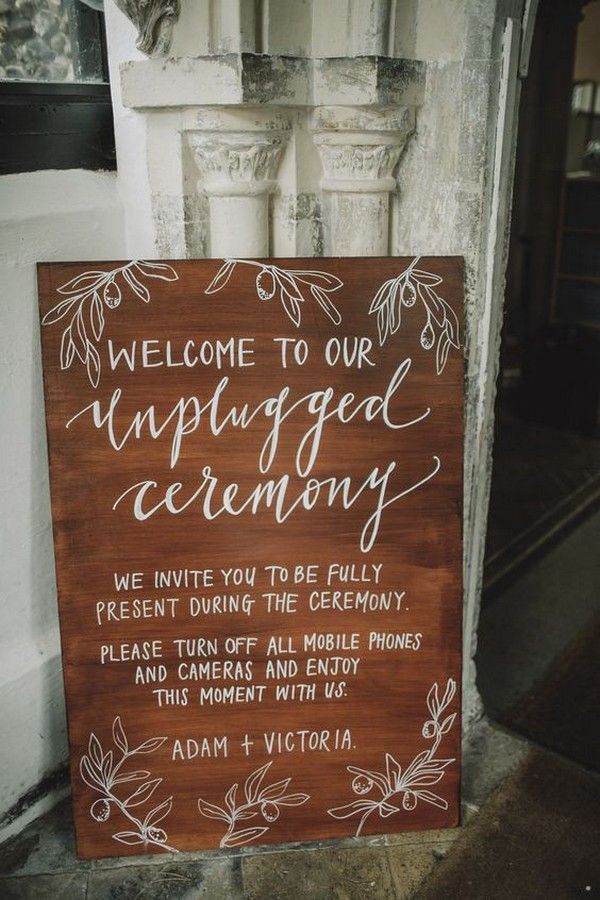 WELCOME TO OUR
unplugged
ceremony
WE INVITE YOU TO BE FULLY
PRESENT DURING THE CEREMONY.
PLEASE TURN OFF ALL MOBILE PHONES
AND CAMERAS AND ENJOY
THIS MOMENT WITH US.
ADAM + VICTORIA.